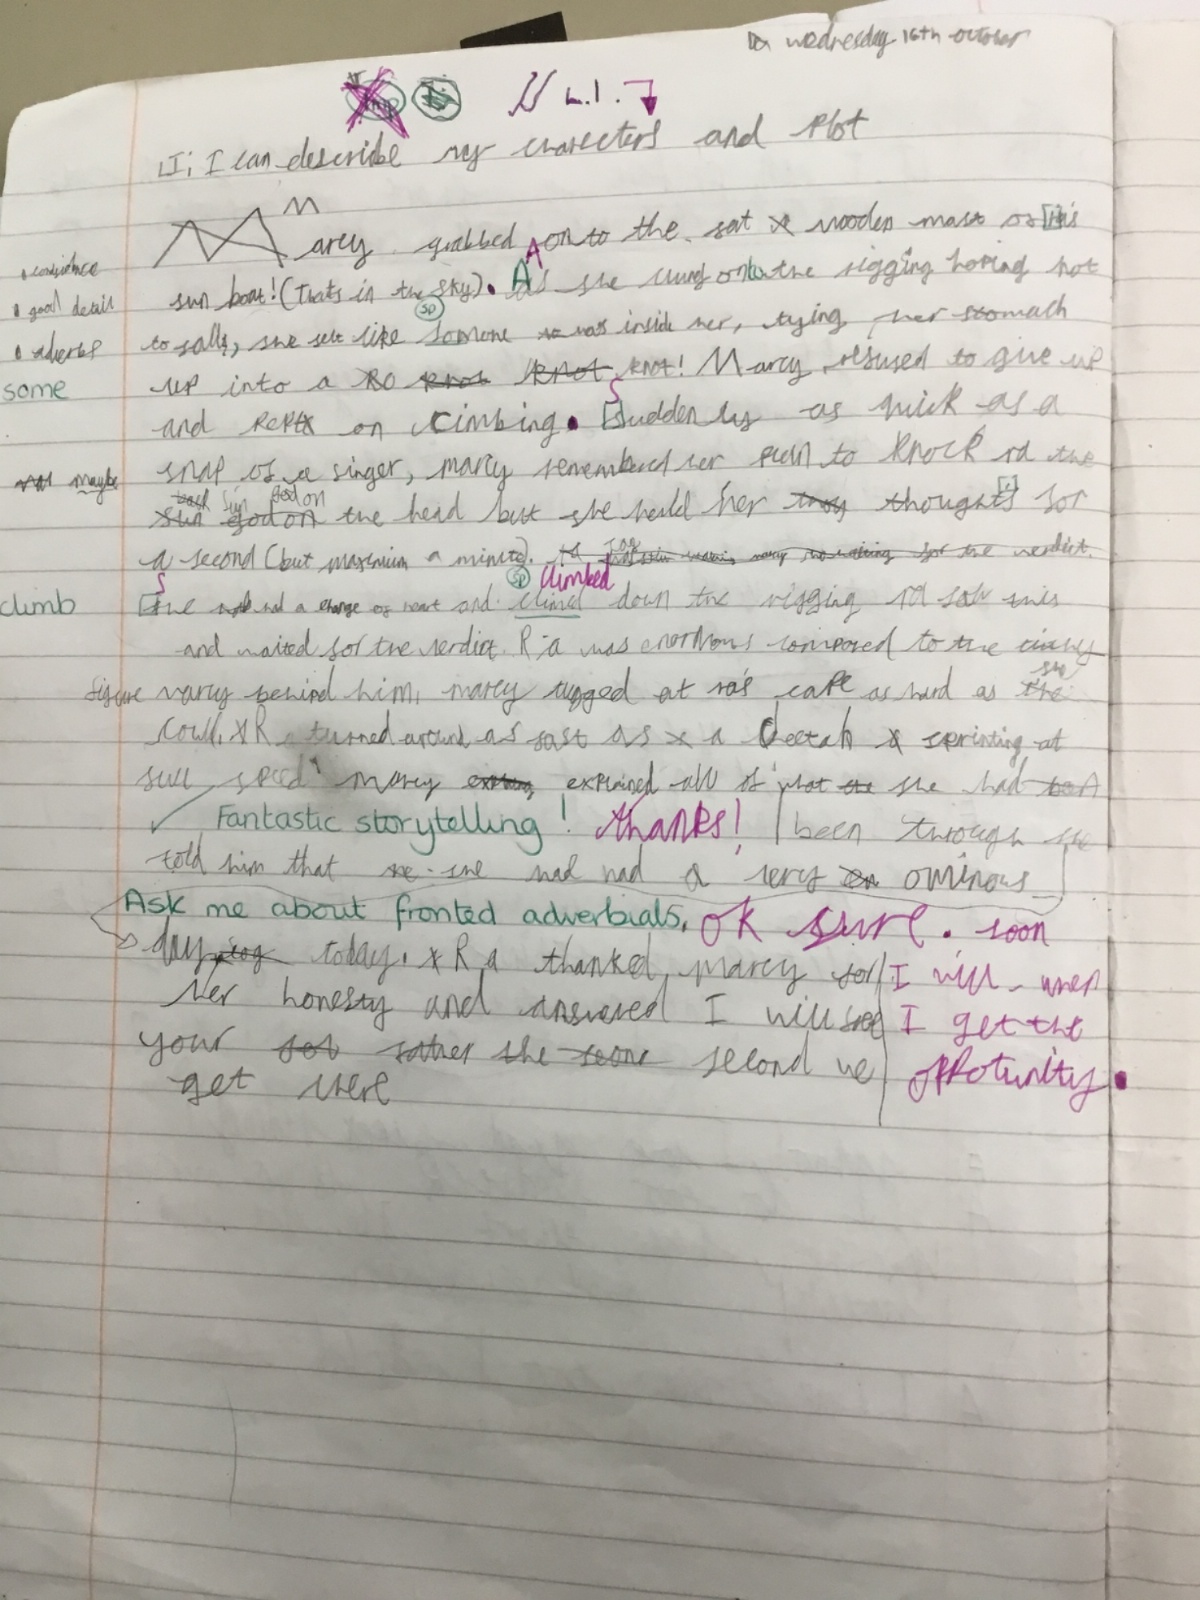 Wednesday 16th October
L.I. →
LI; I can describe my charecters and plot
Marcy grabbed onto the fat wooden mast of His
• confidence
sun boat! (thats in the sky). As she clung onto the rigging hoping not
• good detail
to fall, she felt like somone inside her, tying her stomach
• adverbs
some
up into a knot! Marcy refused to give up
and kept on climbing. Suddenly as quick as a
maybe
snap of a finger, marcy remembered her plan to knock ra the
sun god on the head but she held her thoughts for
a second (but maximum a minute). for the verdict.
climb
She had a change of heart and climed climbed down the rigging ra saw this
and waited for the verdict. Ra was enormous compared to the
figure marcy behind him, marcy tugged at ra's cape as hard as she
could. Ra turned around as fast as a Cheetah sprinting at
full speed marcy explained all of what she had
Fantastic storytelling! thanks! been through she
told him that she had had a very ominous
Ask me about fronted adverbials. ok sure. soon
I will when
I get the
oppotunity.
day today. Ra thanked marcy for
her honesty and answered I will see
your father the second we
get there